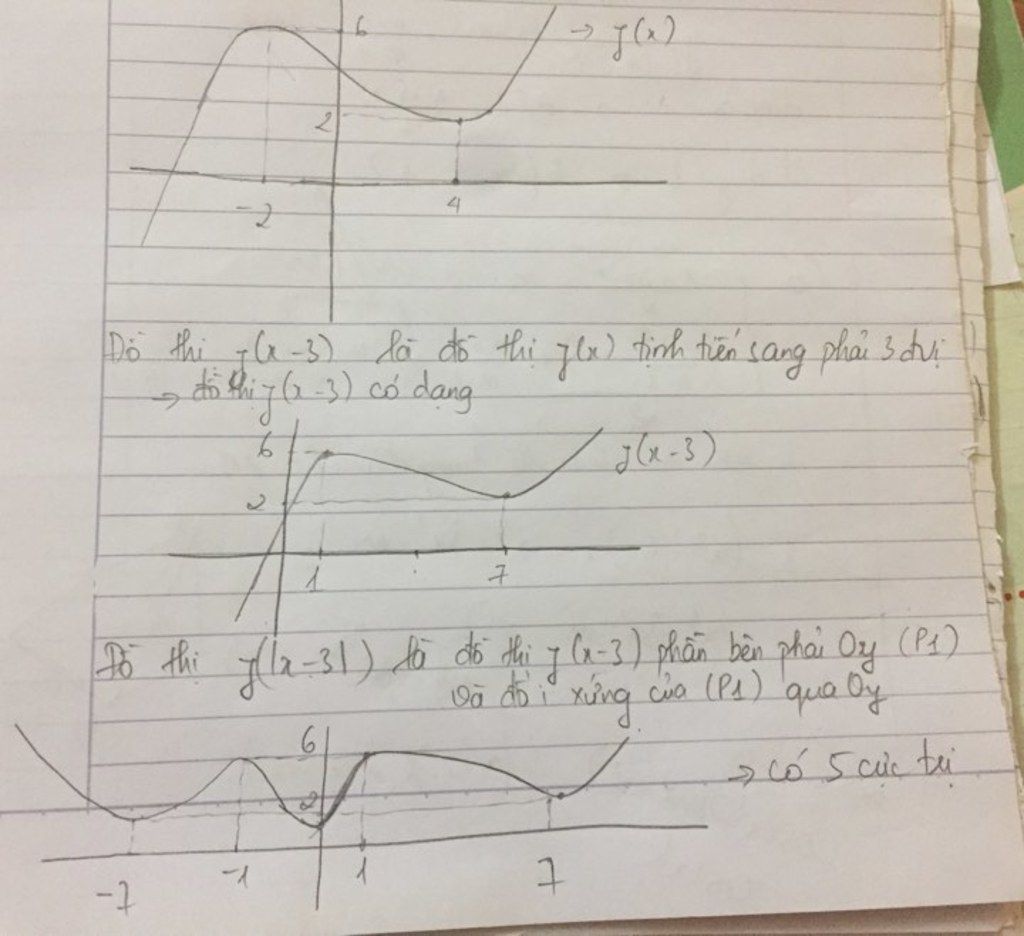 6
→ y(x)
2
-2
4
Đồ thị y(x-3) là đồ thị y(x) tịnh tiến sang phải 3 đvị
→ đồ thị y(x-3) có dạng
6
y(x-3)
2
1
7
Đồ thị y(|x-3|) là đồ thị y(x-3) phần bên phải Oy (P1)
và đối xứng của (P1) qua Oy
6
→ có 5 cực trị
2
-7
-1
1
7